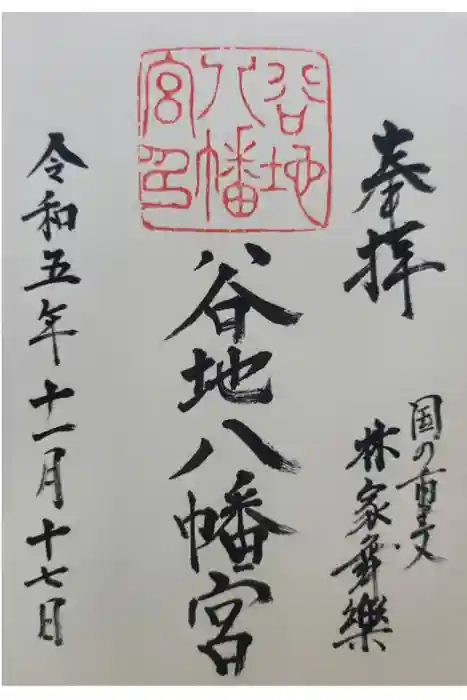 奉拝
国の重文
林家舞樂
谷地八幡宮
谷地八幡宮印
令和五年十一月十七日